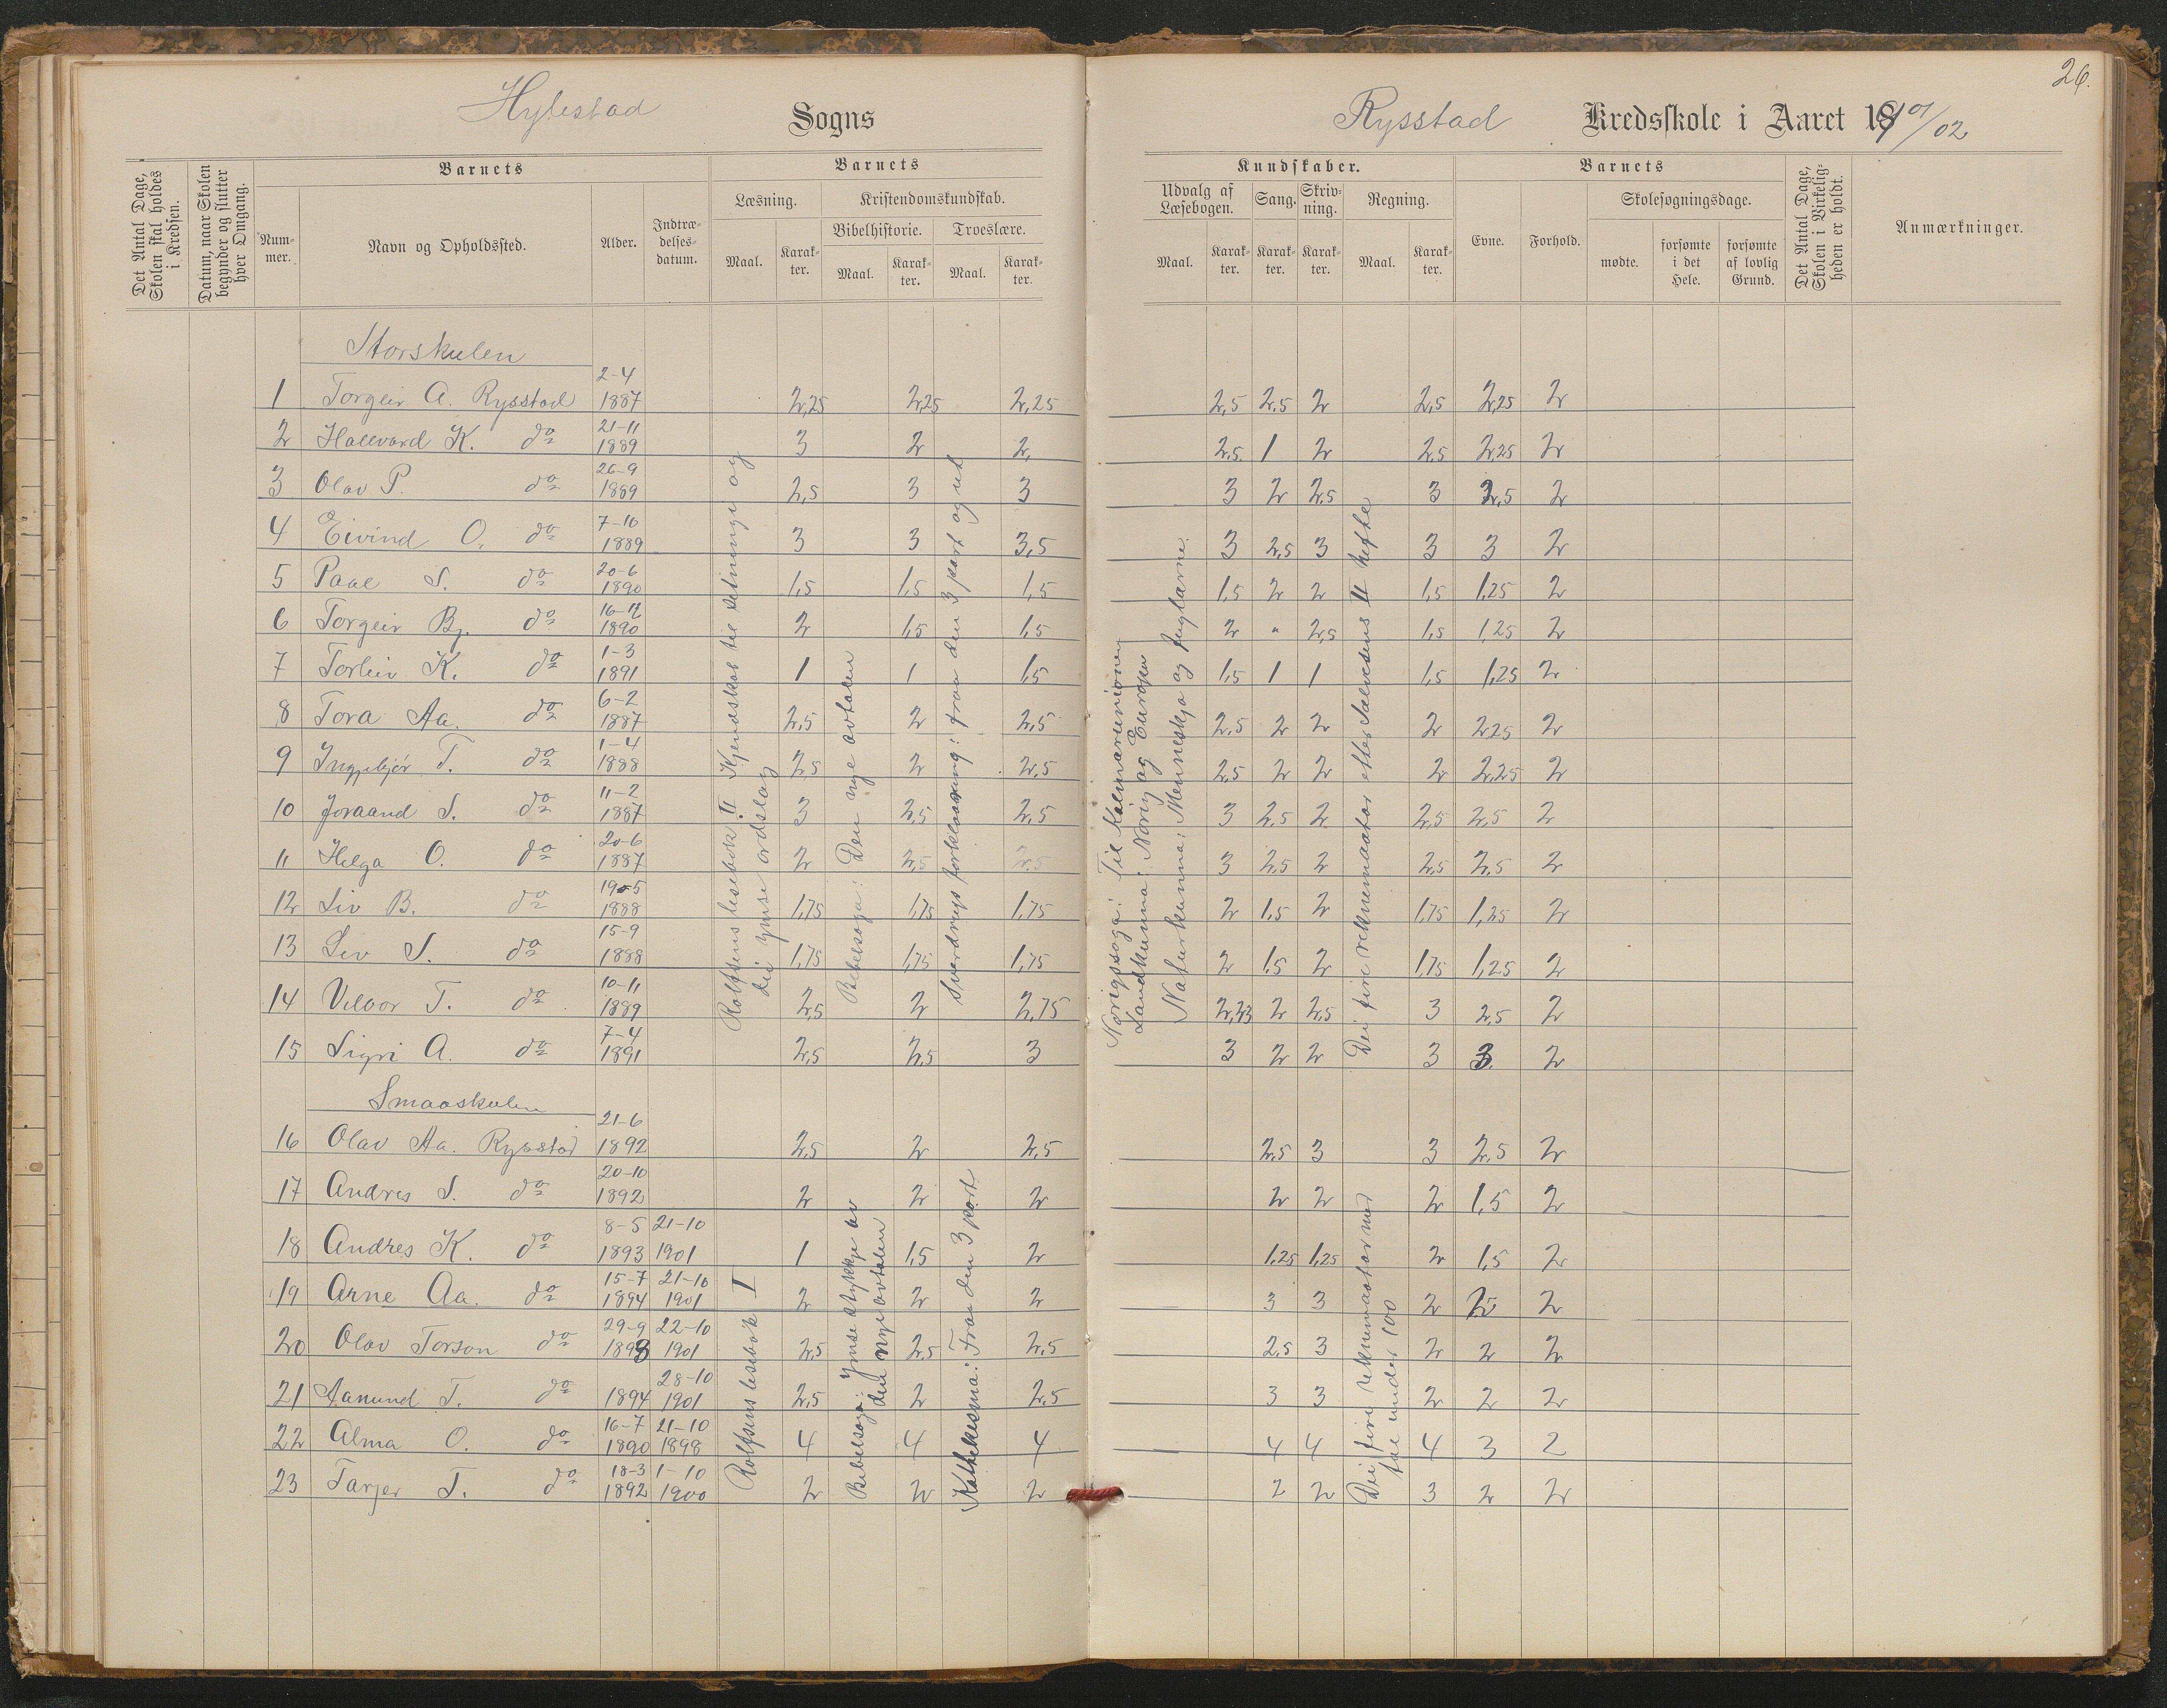 26.
Hylestad Sogns Rysstad Kredsskole i Aaret 1901/02
Det Antal Dage, Skolen skal holdes i Kredsen.
Datum, naar Skolen begynder og slutter hver Omgang.
Barnets
Nummer.
Navn og Opholdssted.
Alder.
Indtrædelsesdatum.
Barnets
Læsning.
Maal.
Karakter.
Kristendomskundskab.
Bibelhistorie.
Maal.
Karakter.
Troeslære.
Maal.
Karakter.
Kundskaber.
Udvalg af Læsebogen.
Maal.
Karakter.
Sang.
Karakter.
Skrivning.
Karakter.
Regning.
Maal.
Karakter.
Barnets
Evne.
Forhold.
Skolesøgningsdage.
mødte.
forsømte i det Hele.
forsømte af lovlig Grund.
Det Antal Dage, Skolen i Virkeligheden er holdt.
Anmærkninger.
Storskulen
1 Torgeir A. Rysstad 2-4 1887 2,25 2,25 2,25 2,5 2,5 2 2,5 2,25 2
2 Hallvard K. do 21-11 1889 3 2 2, 2,5 1 2 2,5 2,25 2
3 Olav P. do 26-9 1889 2,5 3 3 3 2 2,5 3 2,5 2
4 Eivind O. do 7-10 1889 3 3 3,5 3 2,5 3 3 3 2
5 Paal S. do 20-6 1890 1,5 1,5 1,5 1,5 2 2 1,5 1,25 2
6 Torgeir Bj. do 16-12 1890 2 1,5 1,5 2 " 2,5 1,5 1,25 2
7 Torleiv K. do 1-3 1891 1 1 1,5 1,5 1 1 1,5 1,25 2
8 Tora Aa. do 6-2 1887 2,5 2 2,5 2,5 2 2 2 2,25 2
9 Ingebjør T. do 1-4 1888 2,5 2 2,5 2,5 2 2 2 2,25 2
10 Joraand S. do 11-2 1887 3 2,5 2,5 3 2,5 2 2,5 2,5 2
11 Helga O. do 20-6 1887 2 2,5 2,5 3 2,5 2 2,5 2,5 2
12 Liv B. do 19-5 1888 1,75 1,75 1,75 2 1,5 2 1,75 1,25 2
13 Liv S. do 15-9 1888 1,75 1,75 1,75 2 1,5 2 1,75 1,25 2
14 Vilbor T. do 10-11 1889 2,5 2 2,75 2,33 2 2,5 3 2,5 2
15 Sigri A. do 7-4 1891 2,5 2,5 3 3 2 2 3 3 2
Rolfsens lesebok II Kjendskab til setninge og dei ymse ordslag
Bibelsoga: Den nye avtalen
Sverdrups forklaaring: fraa den 3 part og ut
Norigssoga: Til Kalmarunionen
Landkunna: Norig og Europa
Naturkunna: Menneskja og fuglarne.
Dei fire reknemaatar etter Salvesens II hefte
Smaaskulen
16 Olav Aa. Rysstad 21-6 1892 2,5 2 2,5 2,5 3 3 2,5 2
17 Andres S. do 20-10 1892 2 2 2 2 2 2 1,5 2
18 Andres K. do 8-5 1893 21-10 1901 1 1,5 2 1,25 1,25 2 1,5 2
19 Arne Aa. do 15-7 1894 21-10 1901 2 2 2 3 3 2 2 2
20 Olav Torson do 29-9 1893 22-10 1901 2,5 2,5 2,5 2,5 3 2 2 2
21 Aanund T. do 1894 28-10 1901 2,5 2 2,5 3 3 2 2 2
22 Alma O. do 16-7 1890 21-10 1898 4 4 4 4 4 4 3 2
23 Tarjer T. do 18-3 1892 1-10 1900 2 2 2 2 2 3 2 2
Rolfsens lesebok I
Bibelsoga: Ymse stykkje av den nye avtalen
Kathekesma: Fraa den 3 part
Dei fire reknemaatar med tal under 100